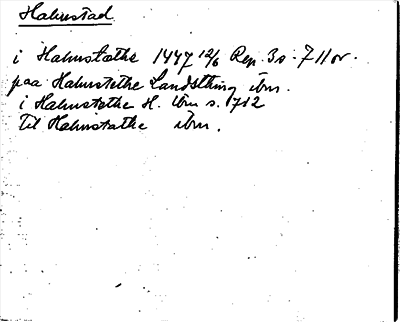 Halmstad
i Halmstathe 1447 12/6 Rep. 3s. 711 or.
paa Halmstethe Landsthing ibm.
i Halmstethe H. ibm s. 712
Til Halmstathe ibm.